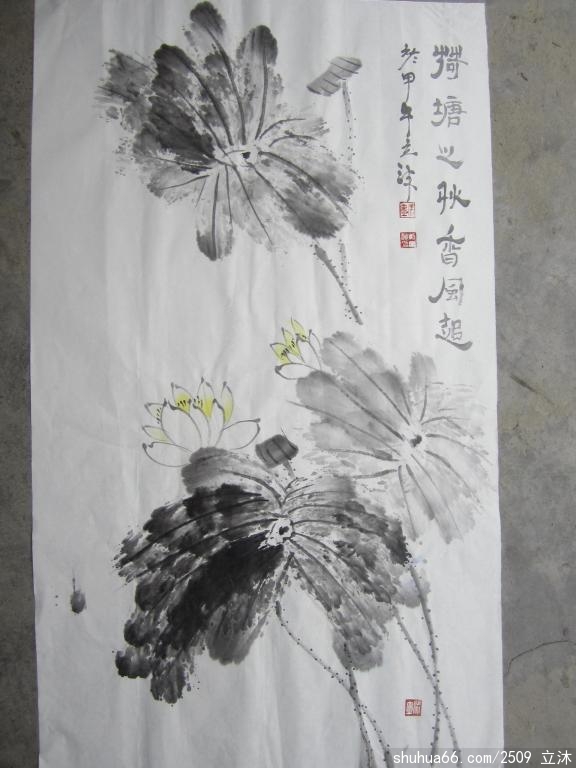 荷塘之秋香风起
於甲午立沐
shuhua66.com/2509 立沐